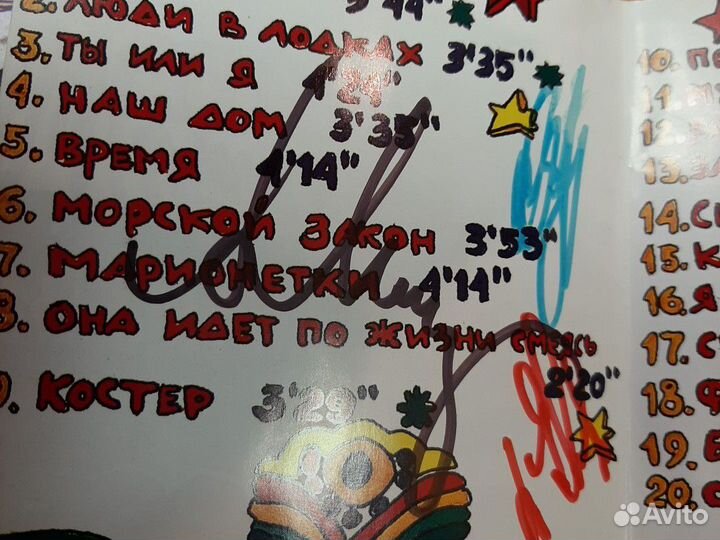 2. ЛЮДИ В ЛОДКАХ 3'44"
3. ТЫ ИЛИ Я 1'24" 3'35"
4. НАШ ДОМ 3'35"
5. ВРЕМЯ 4'14"
6. МОРСКОЙ ЗАКОН 3'53"
7. МАРИОНЕТКИ 4'14"
8. ОНА ИДЕТ ПО ЖИЗНИ СМЕЯСЬ 2'20"
9. КОСТЕР 3'29"
10.
11.
12.
13.
14.
15.
16. Я
17.
18.
19.
20.
Avito